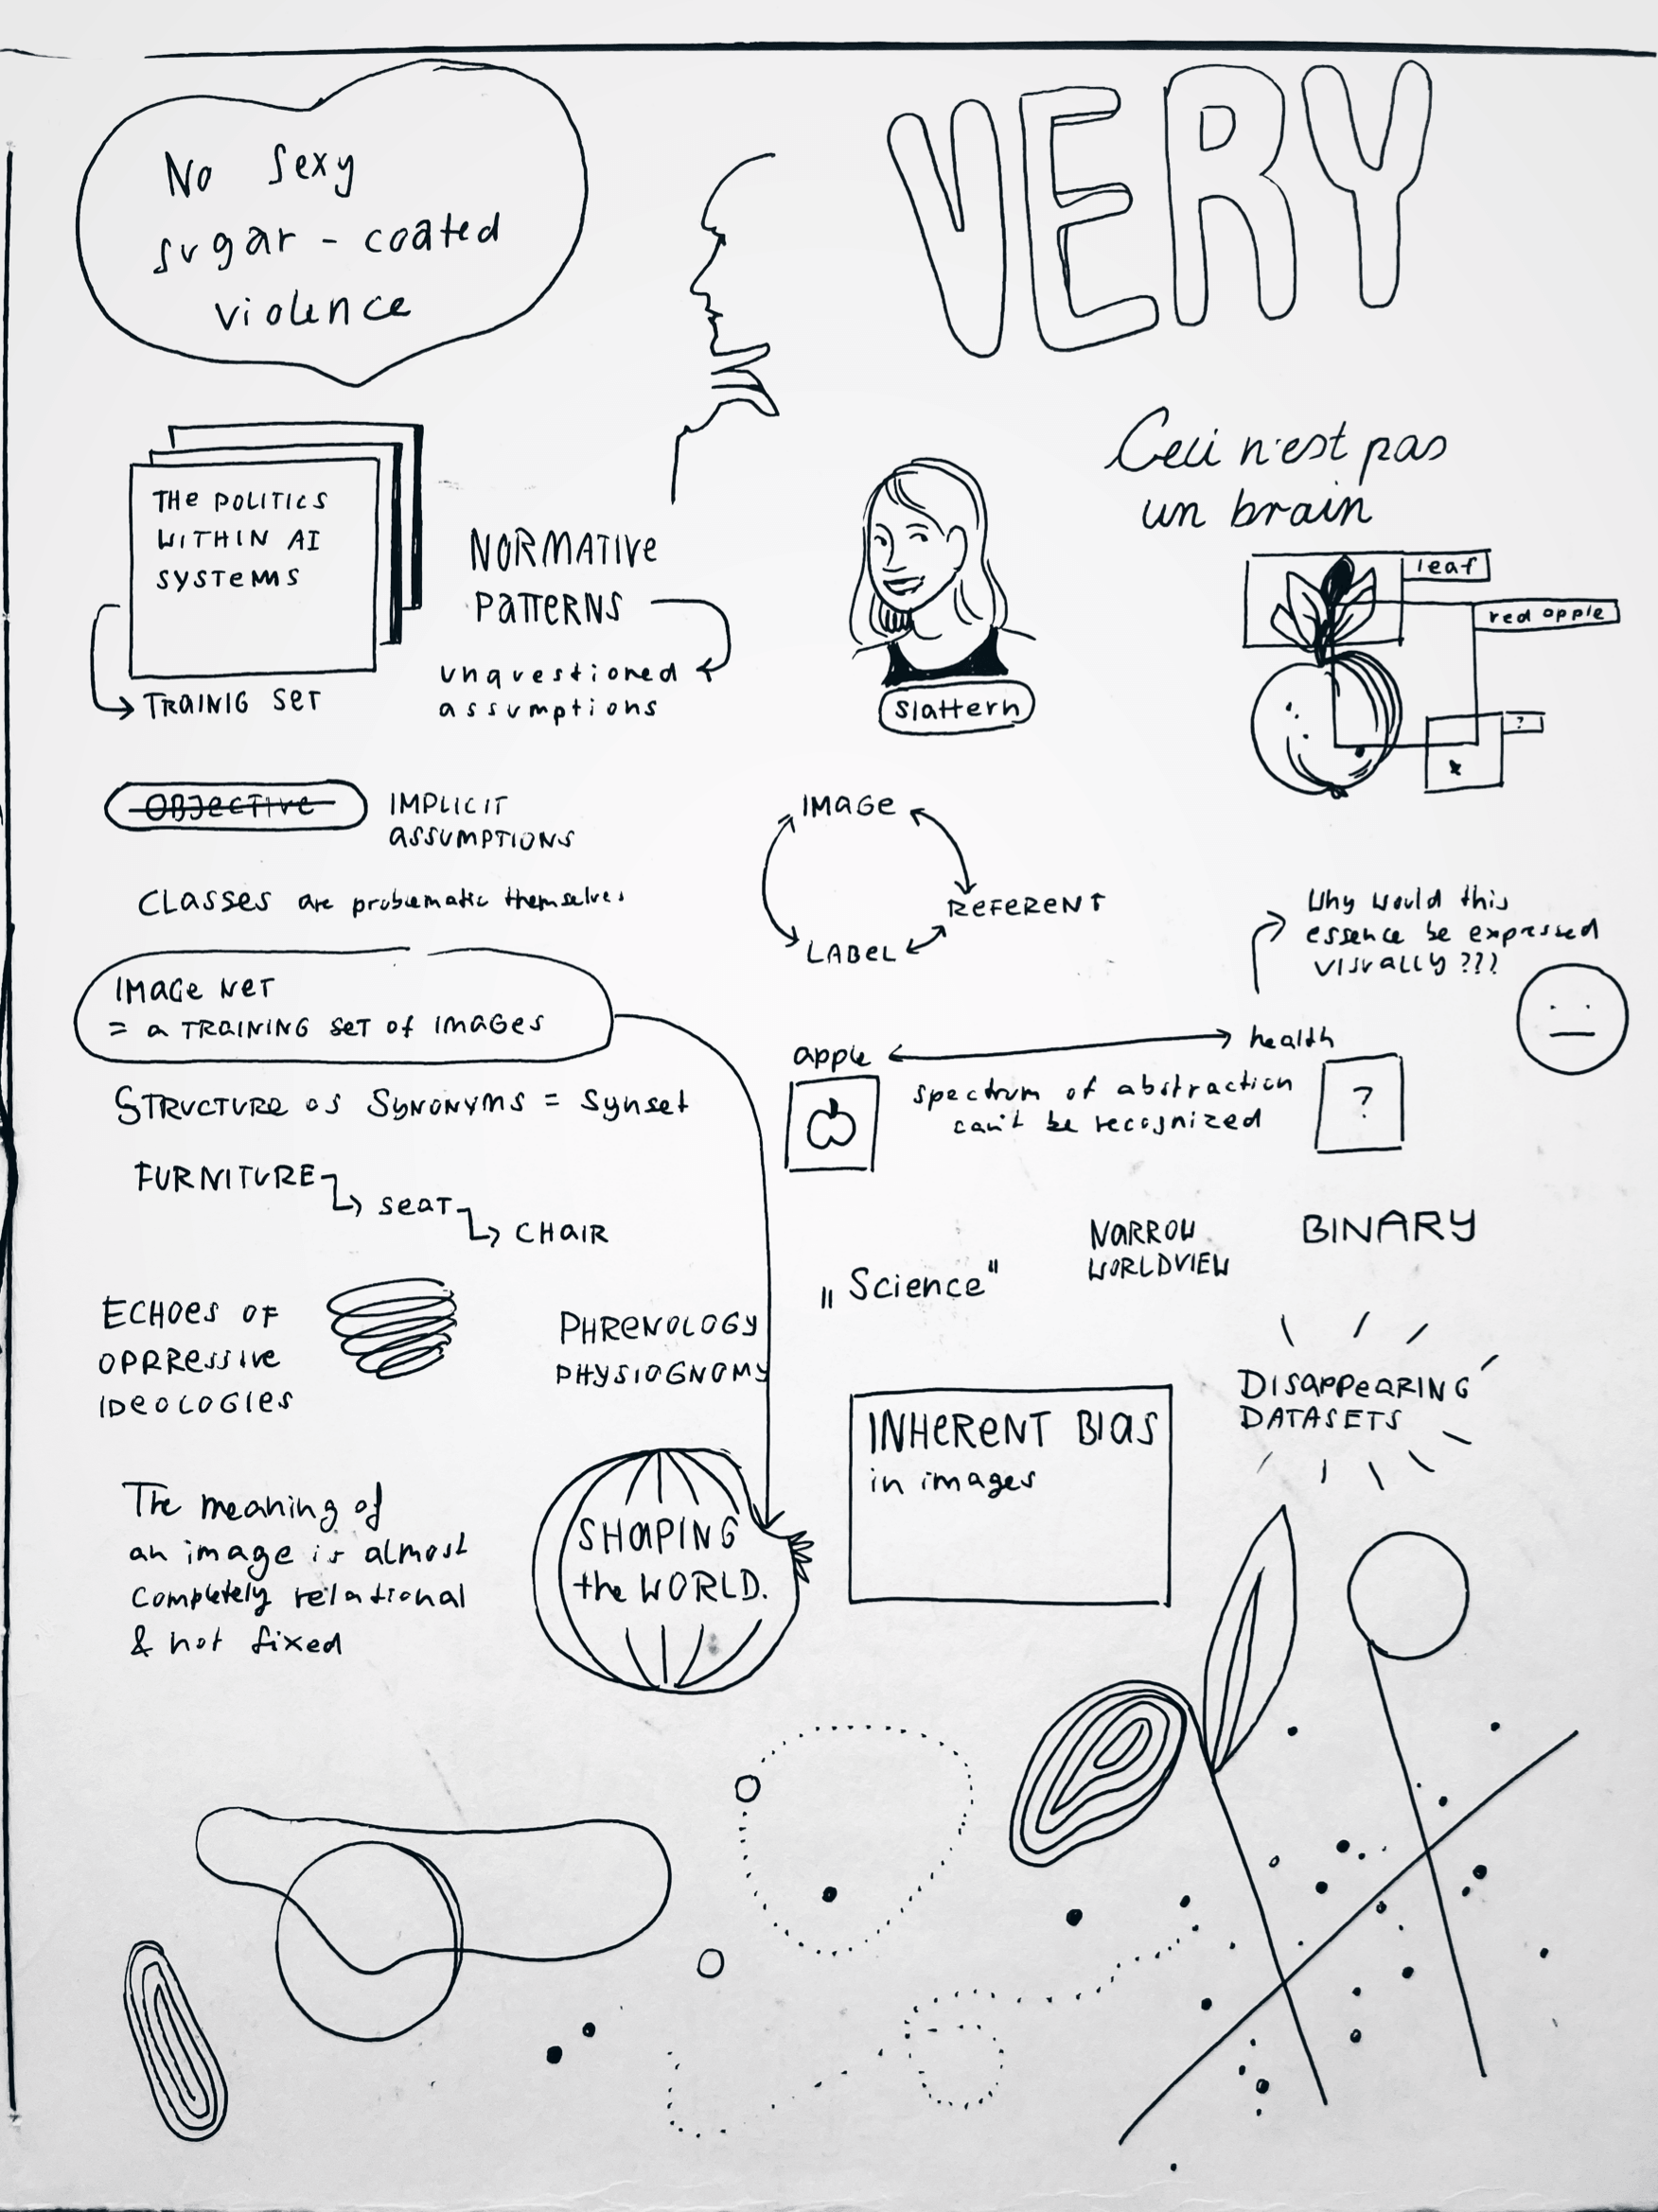 No sexy
sugar - coated
violence
VERY
THE POLITICS
WITHIN AI
SYSTEMS
TRAINIG SET
NORMATIVE
PATTERNS
unquestioned
assumptions
Slattern
Ceci n'est pas
un brain
leaf
red apple
?
OBJECTIVE
IMPLICIT
ASSUMPTIONS
CLASSES are problematic themselves
IMAGE NET
= a TRAINING SET of IMAGES
STRUCTURE OS SYNONYMS = Synset
FURNITURE
SEAT
CHAIR
IMAGE
REFERENT
LABEL
Why would this
essence be expressed
visually ???
apple
health
spectrum of abstraction
can't be recognized
?
ECHOES OF
OPRRESSIVE
IDEOLOGIES
PHRENOLOGY
PHYSIOGNOMY
„Science"
NARROW
WORLDVIEW
BINARY
DISAPPEARING
DATASETS
INHERENT BIAS
in images
The meaning of
an image is almost
completely relational
& not fixed
SHAPING
the WORLD.